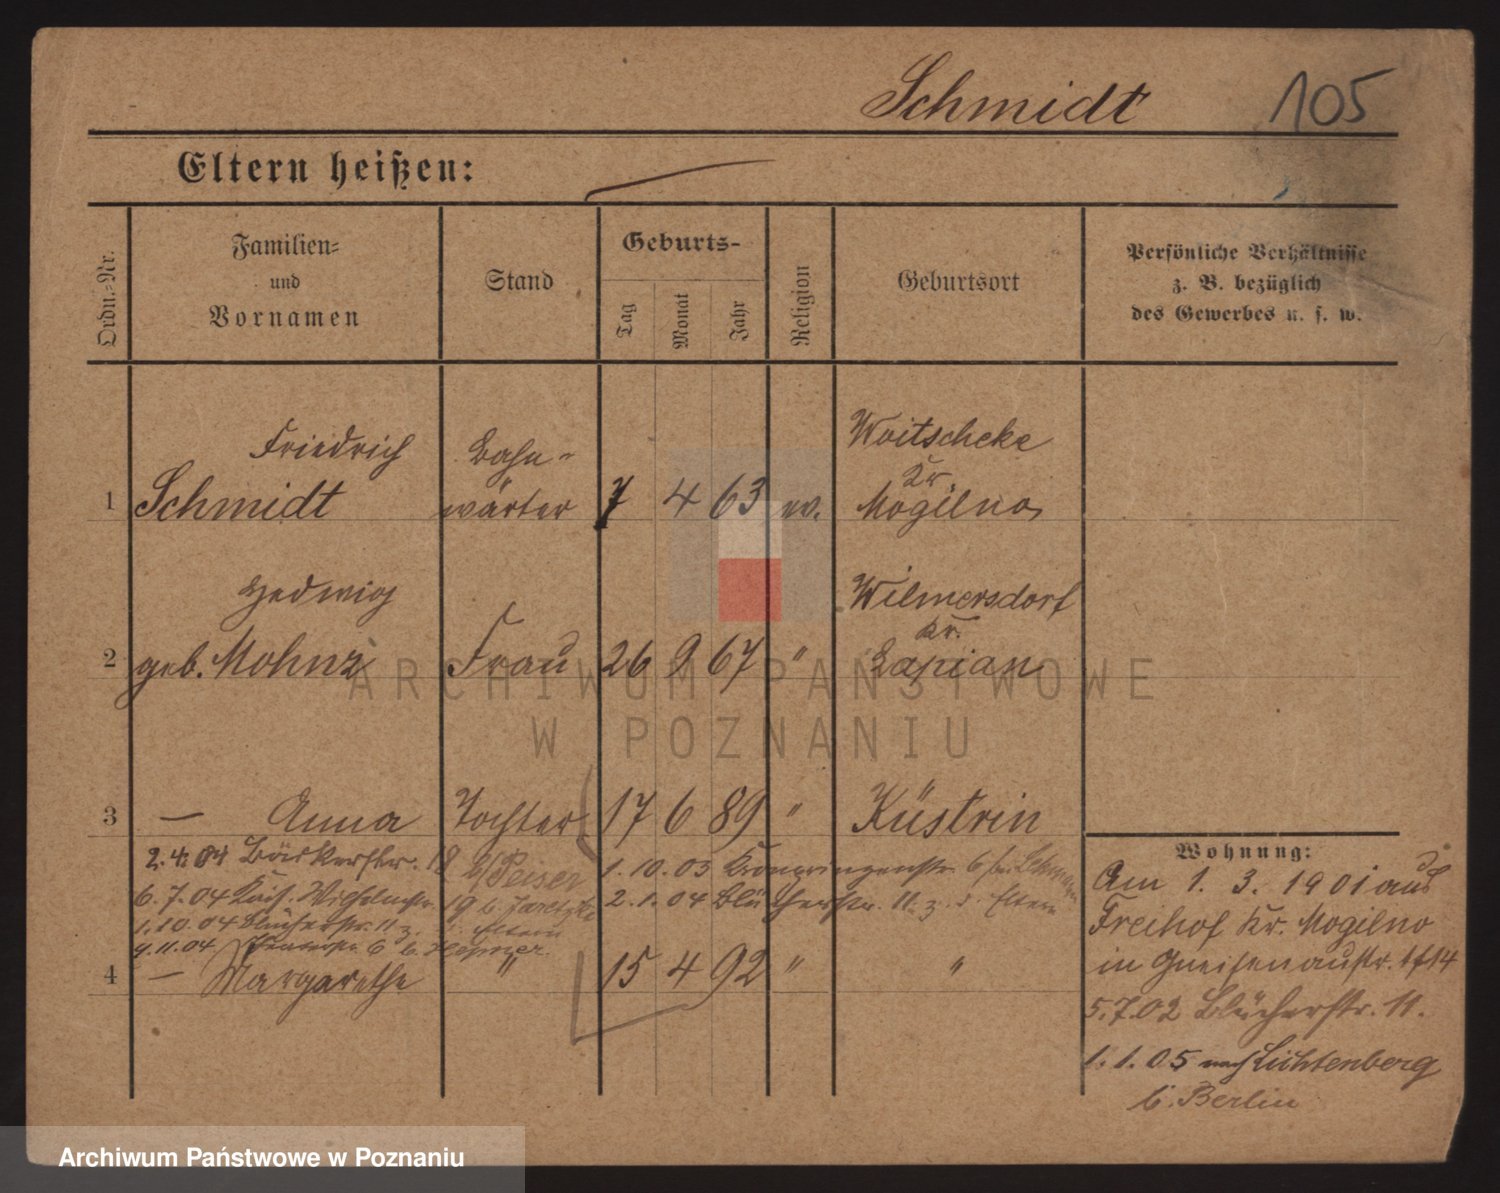 Schmidt 105
Eltern heißen:
Ordn.-Nr.
Familien-
und
Vornamen
Stand
Geburts-
Tag
Monat
Jahr
Religion
Geburtsort
Persönliche Verhältnisse
z. B. bezüglich
des Gewerbes u. s. w.
Friedrich Bahn- Woitscheke
Kr
1 Schmidt wärter 7 4 63 ev. Mogilno
Hedwig Wilmersdorf
Kr.
2 geb. Mohnz Frau 26 9 67 "
3 — Anna Tochter 17 6 89 " Küstrin
2.4.04 Bäckerstr. 18 b/Peiser 1.10.03 Kronprinzenstr 6
6.7.04 Kais. Wilhelmstr. 19 b. 2.1.04 Blücherstr. 11. z. d. Eltern
1.10.04 Blücherstr. 11 z. d. Eltern
9.11.04 6 b.
4 — Margarethe " 15 4 92 " "
Wohnung:
Am 1. 3. 1901 aus
Freihof Kr. Mogilno
in Gneisenaustr.
5.7.02 Blücherstr. 11.
1. 1. 05 nach Lichtenberg
b. Berlin
ARCHIWUM PAŃSTWOWE
W POZNANIU
Archiwum Państwowe w Poznaniu